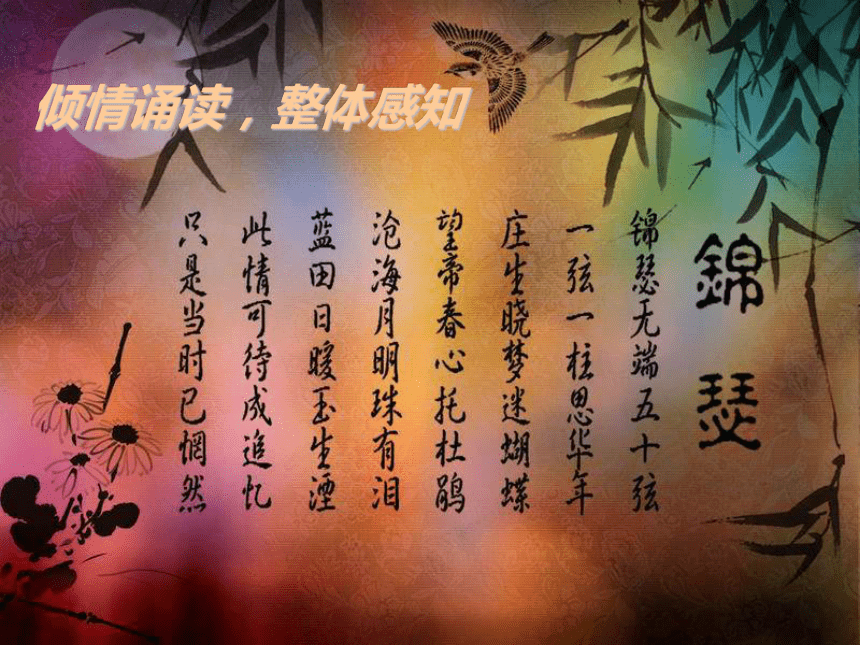 倾情诵读，整体感知
錦瑟
锦瑟无端五十弦
一弦一柱思华年
庄生晓梦迷蝴蝶
望帝春心托杜鹃
沧海月明珠有泪
蓝田日暖玉生湮
此情可待成追忆
只是当时已惘然